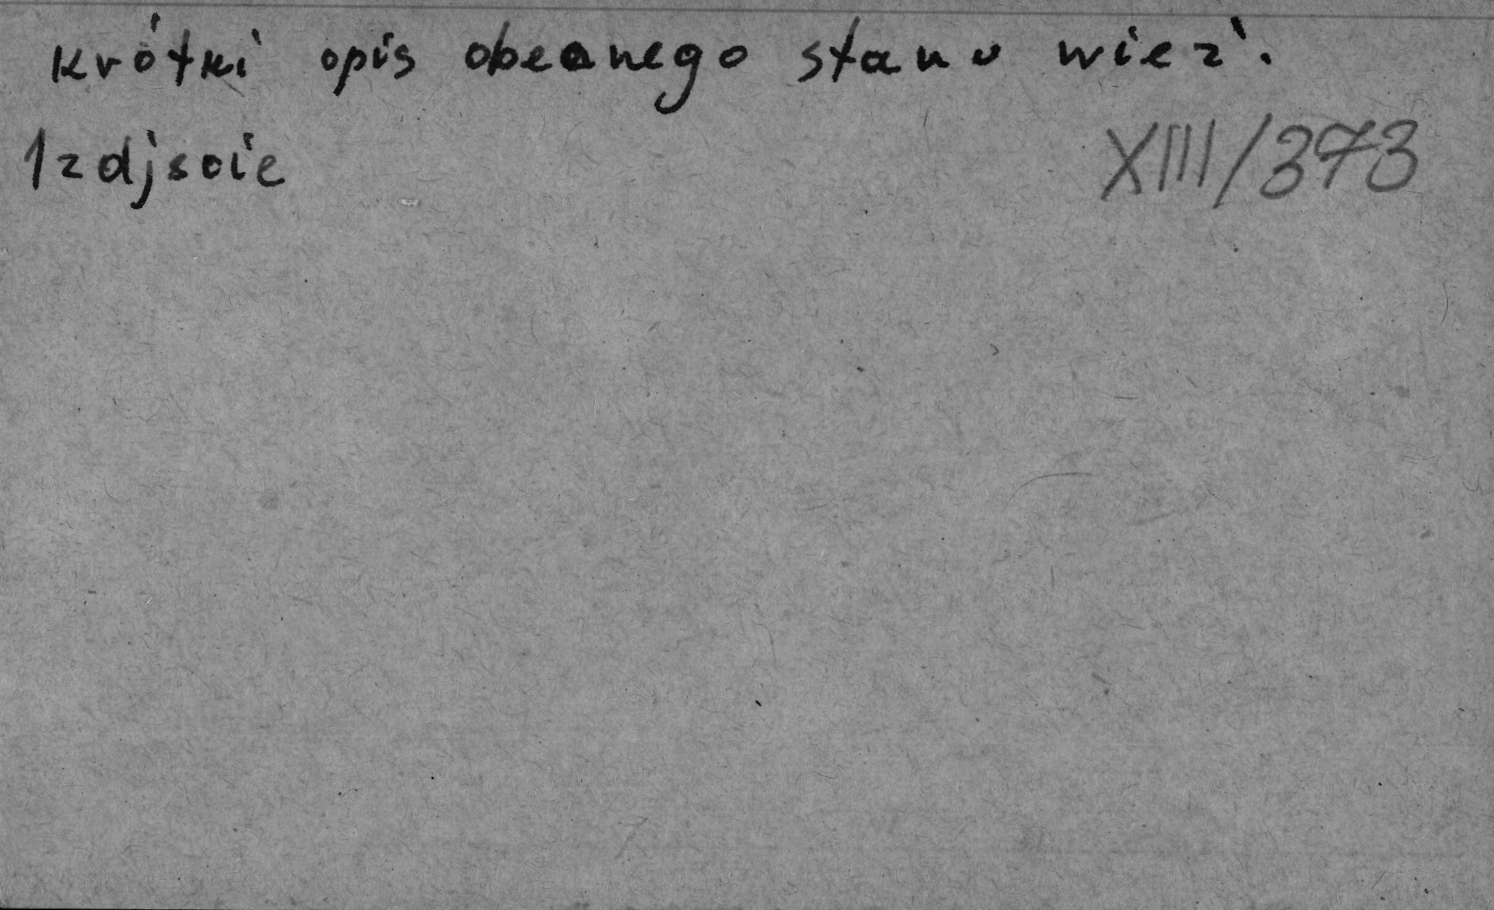 krótki opis obecnego stanu wież.
1 zdjęcie
XIII/373